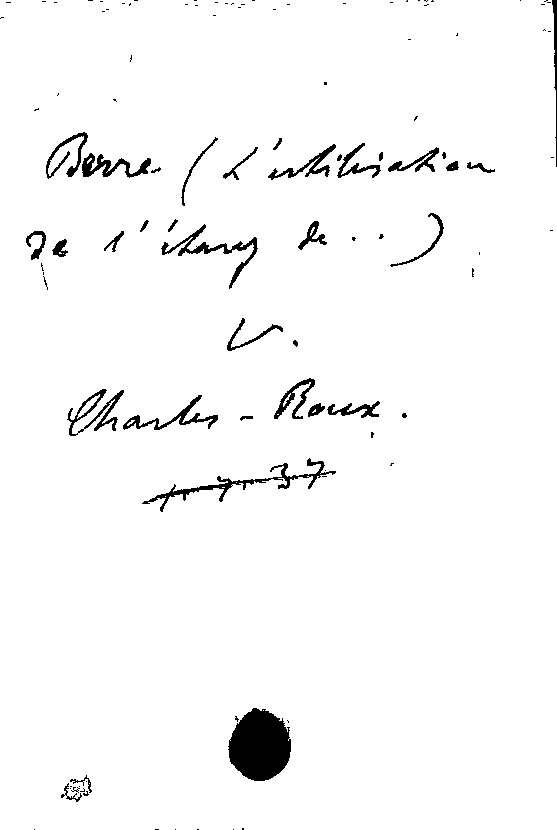 Berre (L'utilisation
de l'étang de ..)
V.
Charles-Roux.
1.7.37